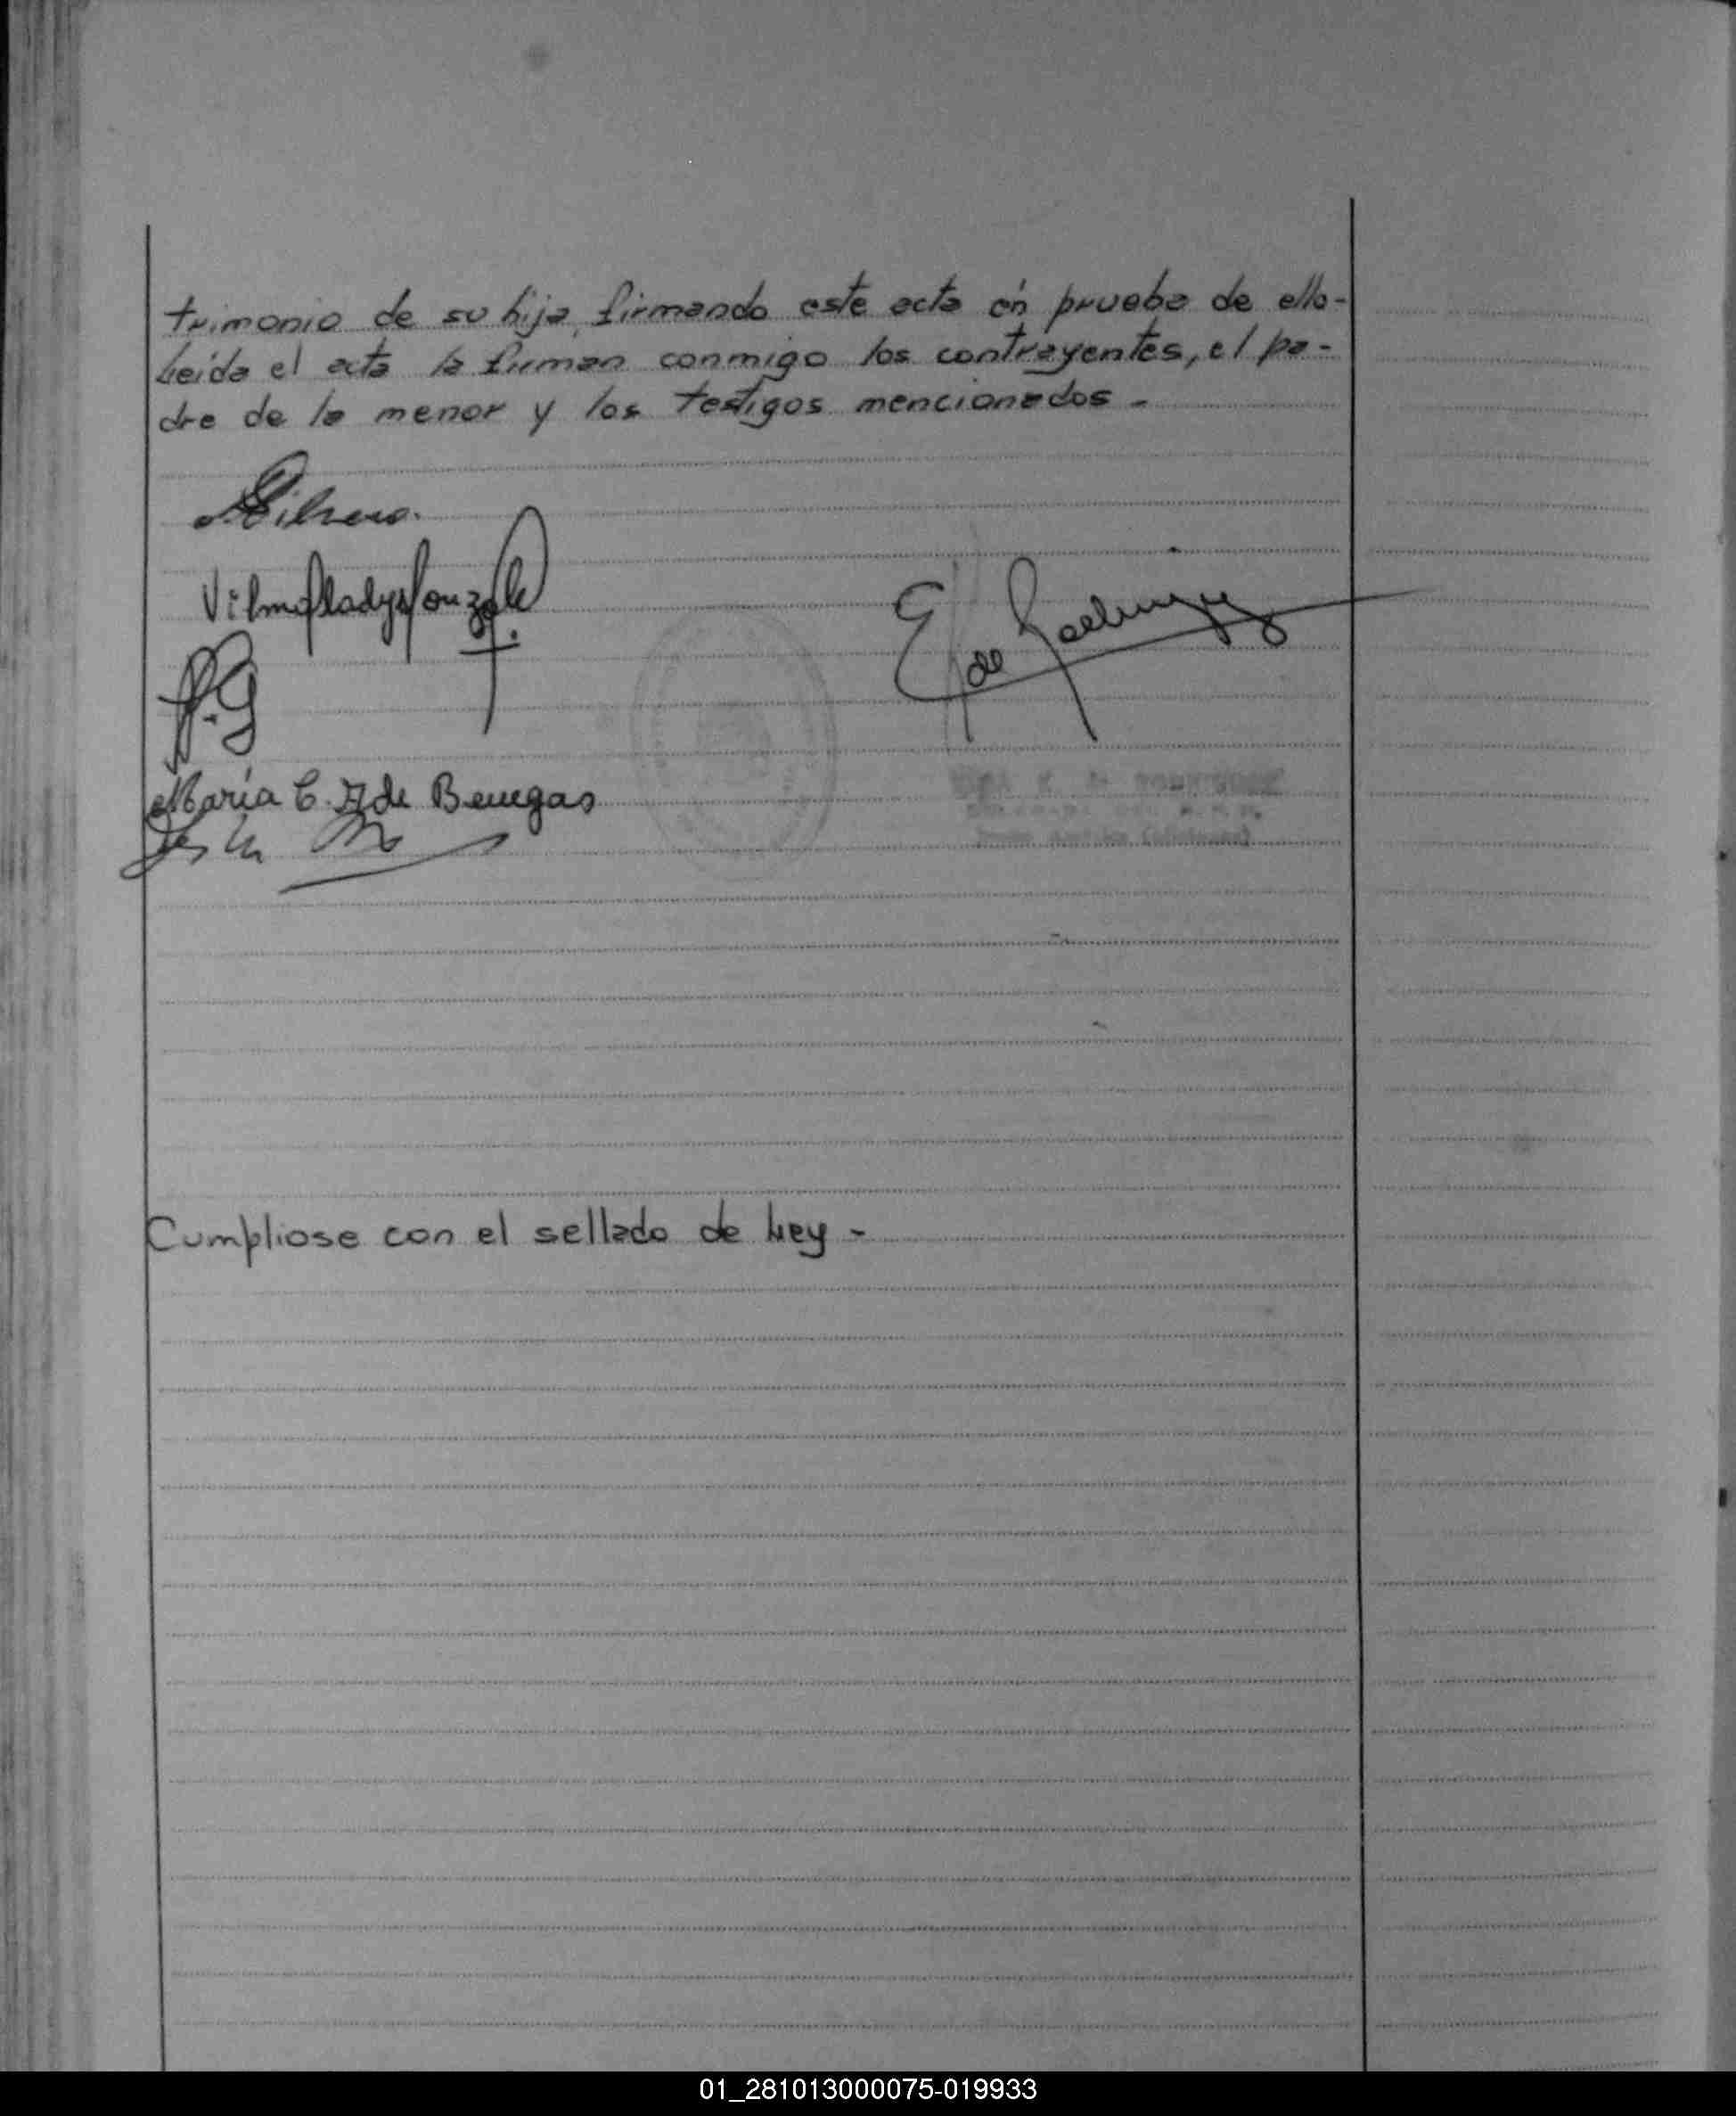 trimonio de su hija, firmando este acta en prueba de ello-
Leida el acta la firman conmigo los contrayentes, el pa-
dre de la menor y los testigos mencionados -
Vilma Gladys Gonzalez
E de
P.G
Maria C. de Benegas
Cumpliose con el sellado de Ley -
01_281013000075-019933